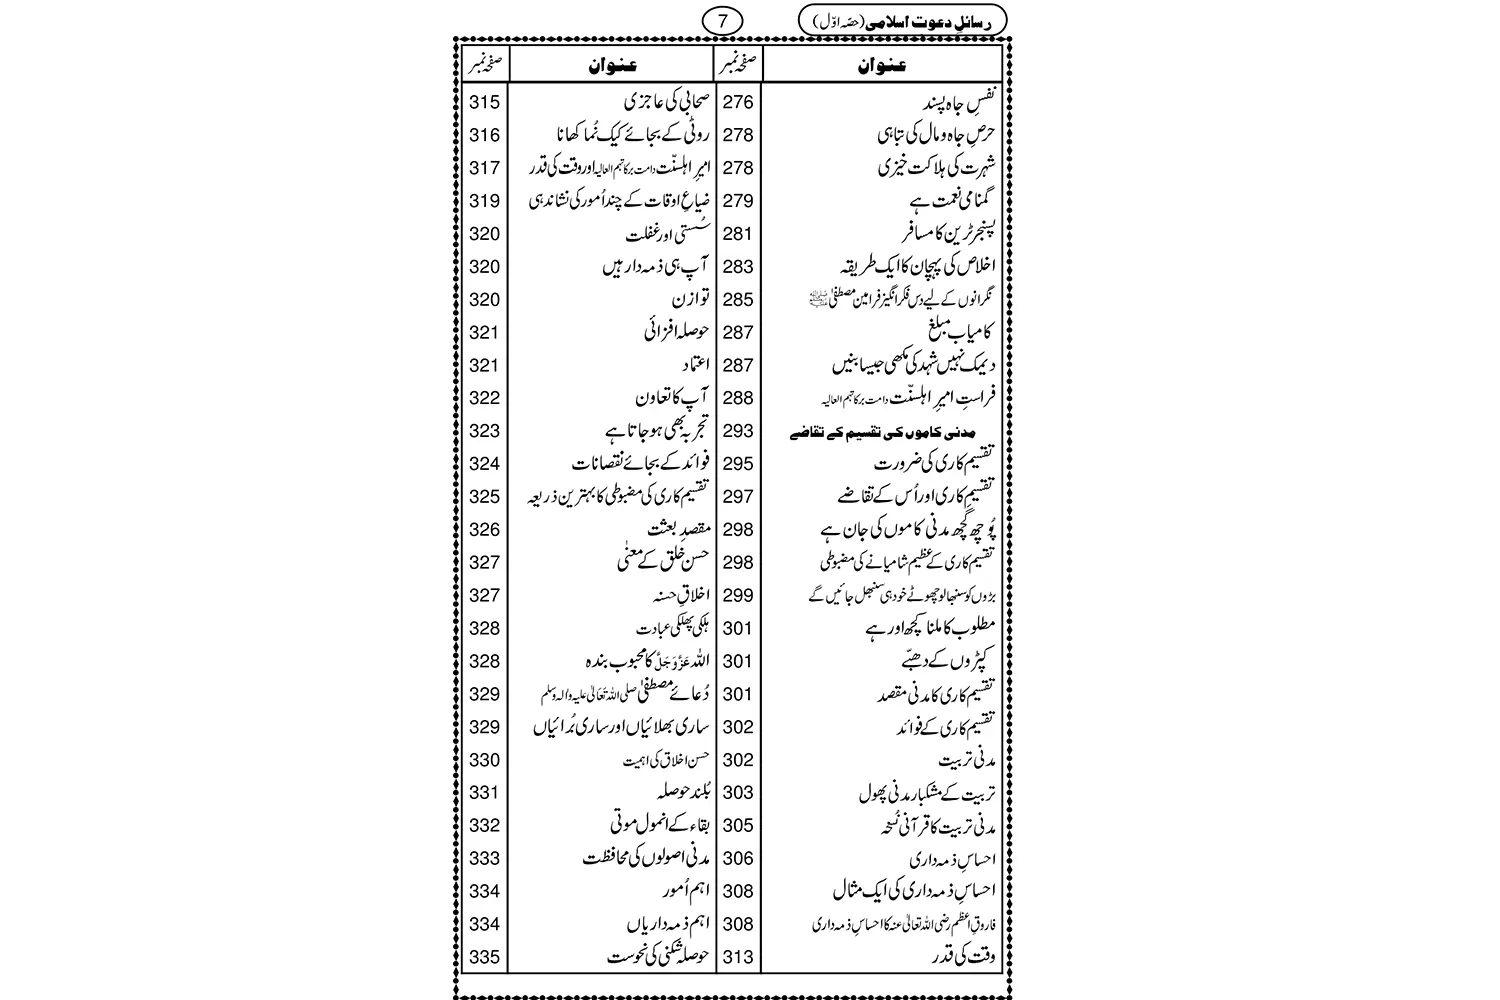 رسائلِ دعوتِ اسلامی (حصّہ اوّل) 7
عنوان صفحہ نمبر عنوان صفحہ نمبر
نفسِ جاہ پسند 276 صحابی کی عاجزی 315
حرصِ جاہ و مال کی تباہی 278 روٹی کے بجائے کیک نُما کھانا 316
شہرت کی ہلاکت خیزی 278 امیرِ اہلسنّت دامت برکاتہم العالیہ اور وقت کی قدر 317
گمنامی نعمت ہے 279 ضیاعِ اوقات کے چند اُمور کی نشاندہی 319
پسنجر ٹرین کا مسافر 281 سُستی اور غفلت 320
اخلاص کی پہچان کا ایک طریقہ 283 آپ ہی ذمہ دار ہیں 320
نگرانوں کے لیے دس فکر انگیز فرامین مصطفیٰ ﷺ 285 توازن 320
کامیاب مبلغ 287 حوصلہ افزائی 321
دیمک نہیں شہد کی مکھی جیسا بنیں 287 اعتماد 321
فراستِ امیرِ اہلسنّت دامت برکاتہم العالیہ 288 آپ کا تعاون 322
مدنی کاموں کی تقسیم کے تقاضے 293 تجربہ بھی ہو جاتا ہے 323
تقسیم کاری کی ضرورت 295 فوائد کے بجائے نقصانات 324
تقسیمِ کاری اور اُس کے تقاضے 297 تقسیم کاری کی مضبوطی کا بہترین ذریعہ 325
پُوچھ گچھ مدنی کاموں کی جان ہے 298 مقصدِ بعثت 326
تقسیم کاری کے عظیم شامیانے کی مضبوطی 298 حسن خَلق کے معنٰی 327
بڑوں کو سنبھالو چھوٹے خود ہی سنبھل جائیں گے 299 اخلاقِ حسنہ 327
مطلوب کا ملنا کچھ اور ہے 301 ہلکی پھلکی عبادت 328
کپڑوں کے دھبّے 301 اللہ عَزَّوَجَلَّ کا محبوب بندہ 328
تقسیم کاری کا مدنی مقصد 301 دُعائے مصطفیٰ صلی اللہ تَعَالیٰ علیہ واٰلہ وسلم 329
تقسیم کاری کے فوائد 302 ساری بھلائیاں اور ساری بُرائیاں 329
مدنی تربیت 302 حسن اخلاق کی اہمیت 330
تربیت کے مشکبار مدنی پھول 303 بُلند حوصلہ 331
مدنی تربیت کا قرآنی نُسخہ 305 بقاء کے انمول موتی 332
احساسِ ذمہ داری 306 مدنی اصولوں کی محافظت 333
احساسِ ذمہ داری کی ایک مثال 308 اہم اُمور 334
فاروقِ اعظم رضی اللہ تعالیٰ عنہ کا احساسِ ذمہ داری 308 اہم ذمہ داریاں 334
وقت کی قدر 313 حوصلہ شکنی کی نحوست 335